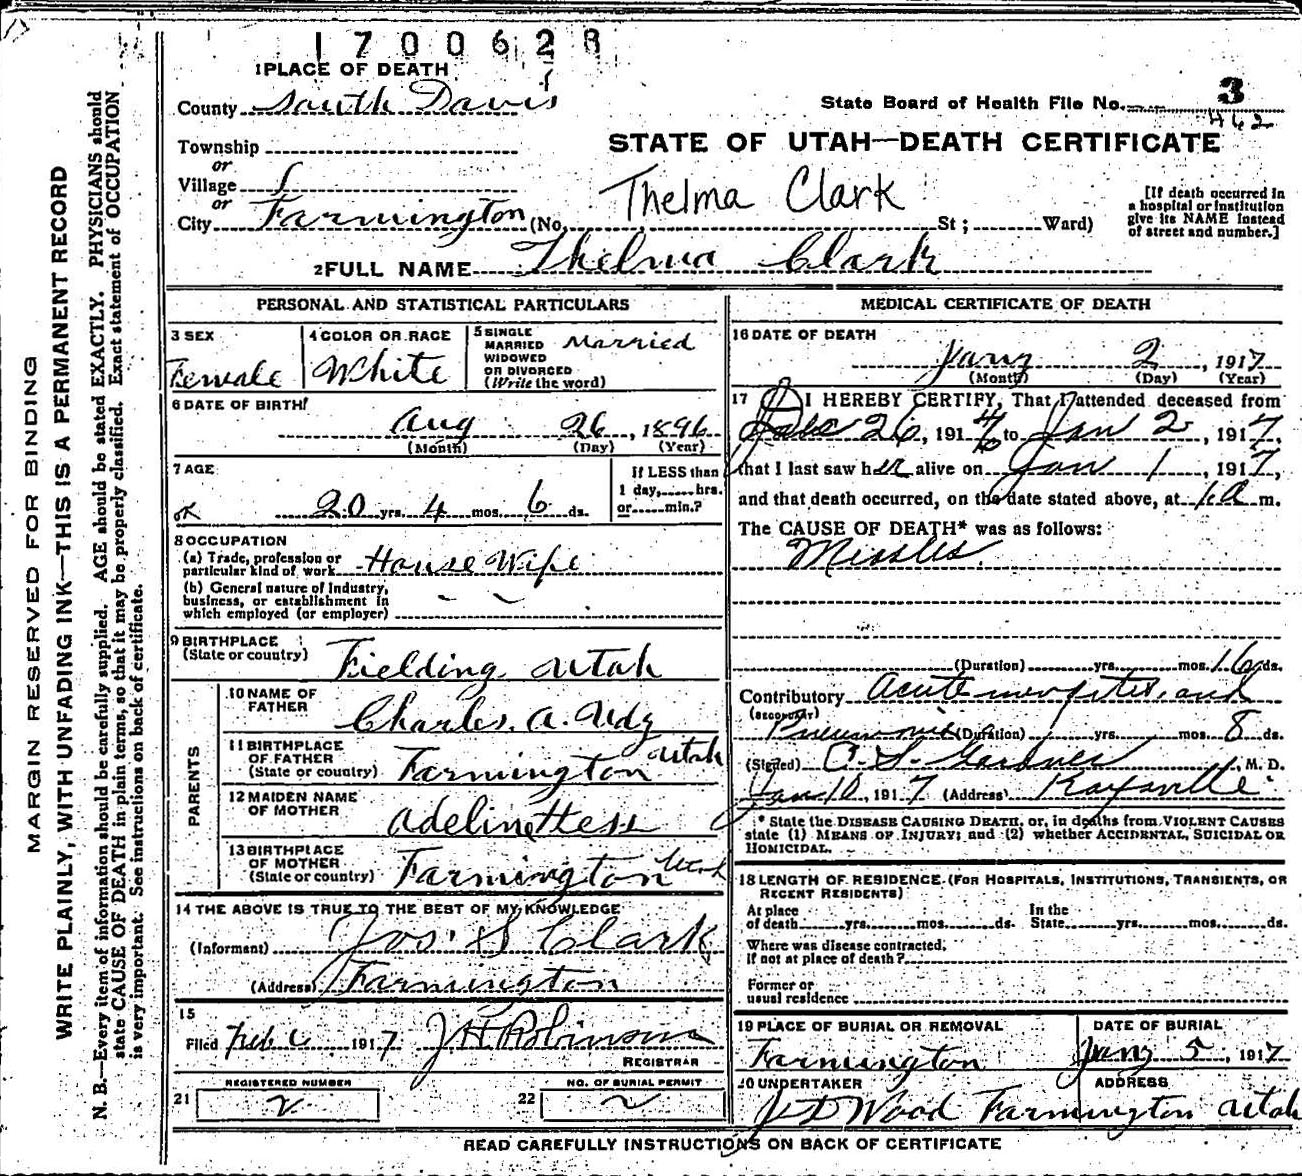 1700628
1 PLACE OF DEATH
County South Davis
State Board of Health File No. 3
462
STATE OF UTAH—DEATH CERTIFICATE
Township
or
Village
or
City Farmington (No. Thelma Clark St; Ward)
[If death occurred in
a hospital or institution
give its NAME instead
of street and number.]
2 FULL NAME Thelma Clark
PERSONAL AND STATISTICAL PARTICULARS
3 SEX
Female
4 COLOR OR RACE
White
5 SINGLE
MARRIED
WIDOWED
OR DIVORCED
(Write the word)
Married
6 DATE OF BIRTH
Aug 26, 1896
(Month) (Day) (Year)
7 AGE
20 yrs. 4 mos. 6 ds.
If LESS than
1 day, hrs.
or min.?
8 OCCUPATION
(a) Trade, profession or
particular kind of work House Wife
(b) General nature of industry,
business, or establishment in
which employed (or employer)
9 BIRTHPLACE
(State or country) Fielding Utah
PARENTS
10 NAME OF
FATHER Charles. A. Udy
11 BIRTHPLACE
OF FATHER
(State or country) Farmington Utah
12 MAIDEN NAME
OF MOTHER Adeline Hess
13 BIRTHPLACE
OF MOTHER
(State or country) Farmington Utah
14 THE ABOVE IS TRUE TO THE BEST OF MY KNOWLEDGE
(Informant) Jos. S Clark
(Address) Farmington
15
Filed Feb 6, 1917 J H Robinson
REGISTRAR
REGISTERED NUMBER
21 2
NO. OF BURIAL PERMIT
22 2
MEDICAL CERTIFICATE OF DEATH
16 DATE OF DEATH
Jany 2, 1917
(Month) (Day) (Year)
17 I HEREBY CERTIFY, That I attended deceased from
Dec 26, 1916 to Jan 2, 1917,
that I last saw her alive on Jan 1, 1917,
and that death occurred, on the date stated above, at 1 a m.
The CAUSE OF DEATH* was as follows:
Missles.
(Duration) yrs. mos. 16 ds.
Contributory Acute and
(secondary)
Pneumonia (Duration) yrs. mos. 8 ds.
(Signed) O. S. Gardner, M. D.
Jan 10, 1917 (Address) Kaysville
* State the DISEASE CAUSING DEATH, or, in deaths from VIOLENT CAUSES
state (1) MEANS OF INJURY; and (2) whether ACCIDENTAL, SUICIDAL OR
HOMICIDAL.
18 LENGTH OF RESIDENCE (FOR HOSPITALS, INSTITUTIONS, TRANSIENTS, OR
RECENT RESIDENTS)
At place
of death yrs. mos. ds.
In the
State yrs. mos. ds.
Where was disease contracted,
If not at place of death?
Former or
usual residence
19 PLACE OF BURIAL OR REMOVAL
Farmington
DATE OF BURIAL
Jany 5, 1917
20 UNDERTAKER
J D Wood
ADDRESS
Farmington Utah
READ CAREFULLY INSTRUCTIONS ON BACK OF CERTIFICATE
MARGIN RESERVED FOR BINDING
WRITE PLAINLY, WITH UNFADING INK—THIS IS A PERMANENT RECORD
N. B.—Every item of information should be carefully supplied. AGE should be stated EXACTLY. PHYSICIANS should
state CAUSE OF DEATH in plain terms, so that it may be properly classified. Exact statement of OCCUPATION
is very important. See instructions on back of certificate.